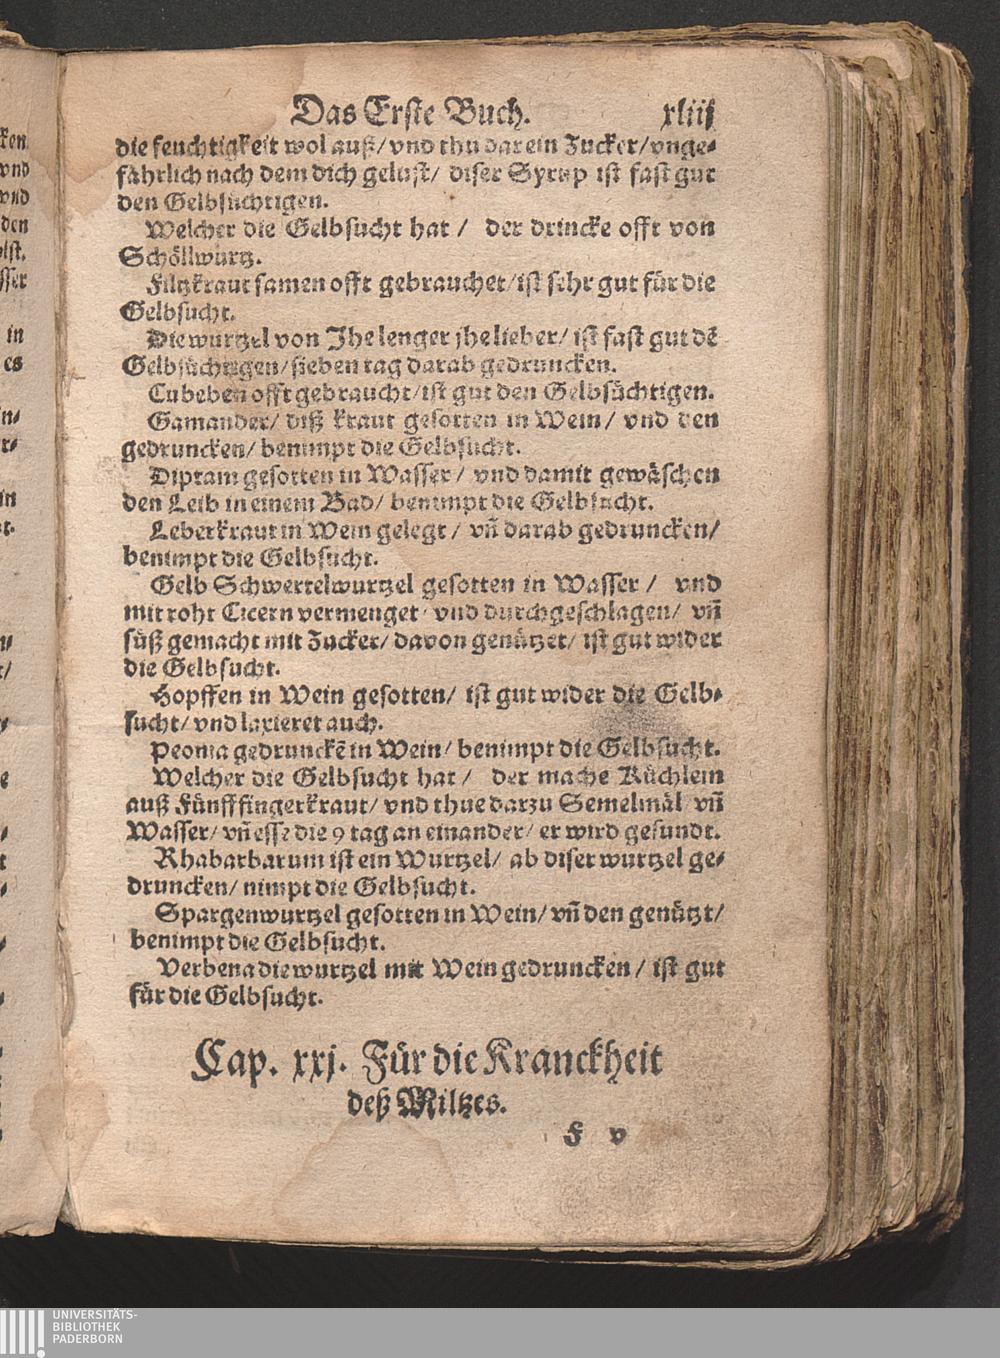 Das Erste Buch. xliij
die feuchtigkeit wol auß/ vnd thu darein Zucker/ vnge-
fährlich nach dem dich gelust/ diser Syrup ist fast gut
den Gelbsüchtigen.
Welcher die Gelbsucht hat / der drincke offt von
Schöllwurtz.
Filtzkraut samen offt gebrauchet/ ist sehr gut für die
Gelbsucht.
Die wurtzel von Jhe lenger jhe lieber/ ist fast gut dē
Gelbsüchtigen/ sieben tag darab gedruncken.
Cubeben offt gebraucht/ ist gut den Gelbsüchtigen.
Gamander/ diß kraut gesotten in Wein/ vnd den
gedruncken/ benimpt die Gelbsucht.
Diptam gesotten in Wasser/ vnd damit gewäschen
den Leib in einem Bad/ benimpt die Gelbsucht.
Leberkraut in Wein gelegt / vñ darab gedruncken/
benimpt die Gelbsucht.
Gelb Schwertelwurtzel gesotten in Wasser / vnd
mit roht Cicern vermenget/ vnd durchgeschlagen/ vñ
süß gemacht mit Zucker/ davon genützet/ ist gut wider
die Gelbsucht.
Hopffen in Wein gesotten/ ist gut wider die Gelb-
sucht/ vnd laxieret auch.
Peonia gedrunckē in Wein/ benimpt die Gelbsucht.
Welcher die Gelbsucht hat / der mache Küchlein
auß Fünfffingerkraut/ vnd thue darzu Semelmäl/ vñ
Wasser/ vñ esse die 9 tag an einander/ er wird gesundt.
Rhabarbarum ist ein Wurtzel/ ab diser wurtzel ge-
druncken/ nimpt die Gelbsucht.
Spargenwurtzel gesotten in Wein/ vñ den genützt/
benimpt die Gelbsucht.
Verbena die wurtzel mit Wein gedruncken / ist gut
für die Gelbsucht.
Cap. xxj. Für die Kranckheit
deß Miltzes.
F v
UNIVERSITÄTS-
BIBLIOTHEK
PADERBORN